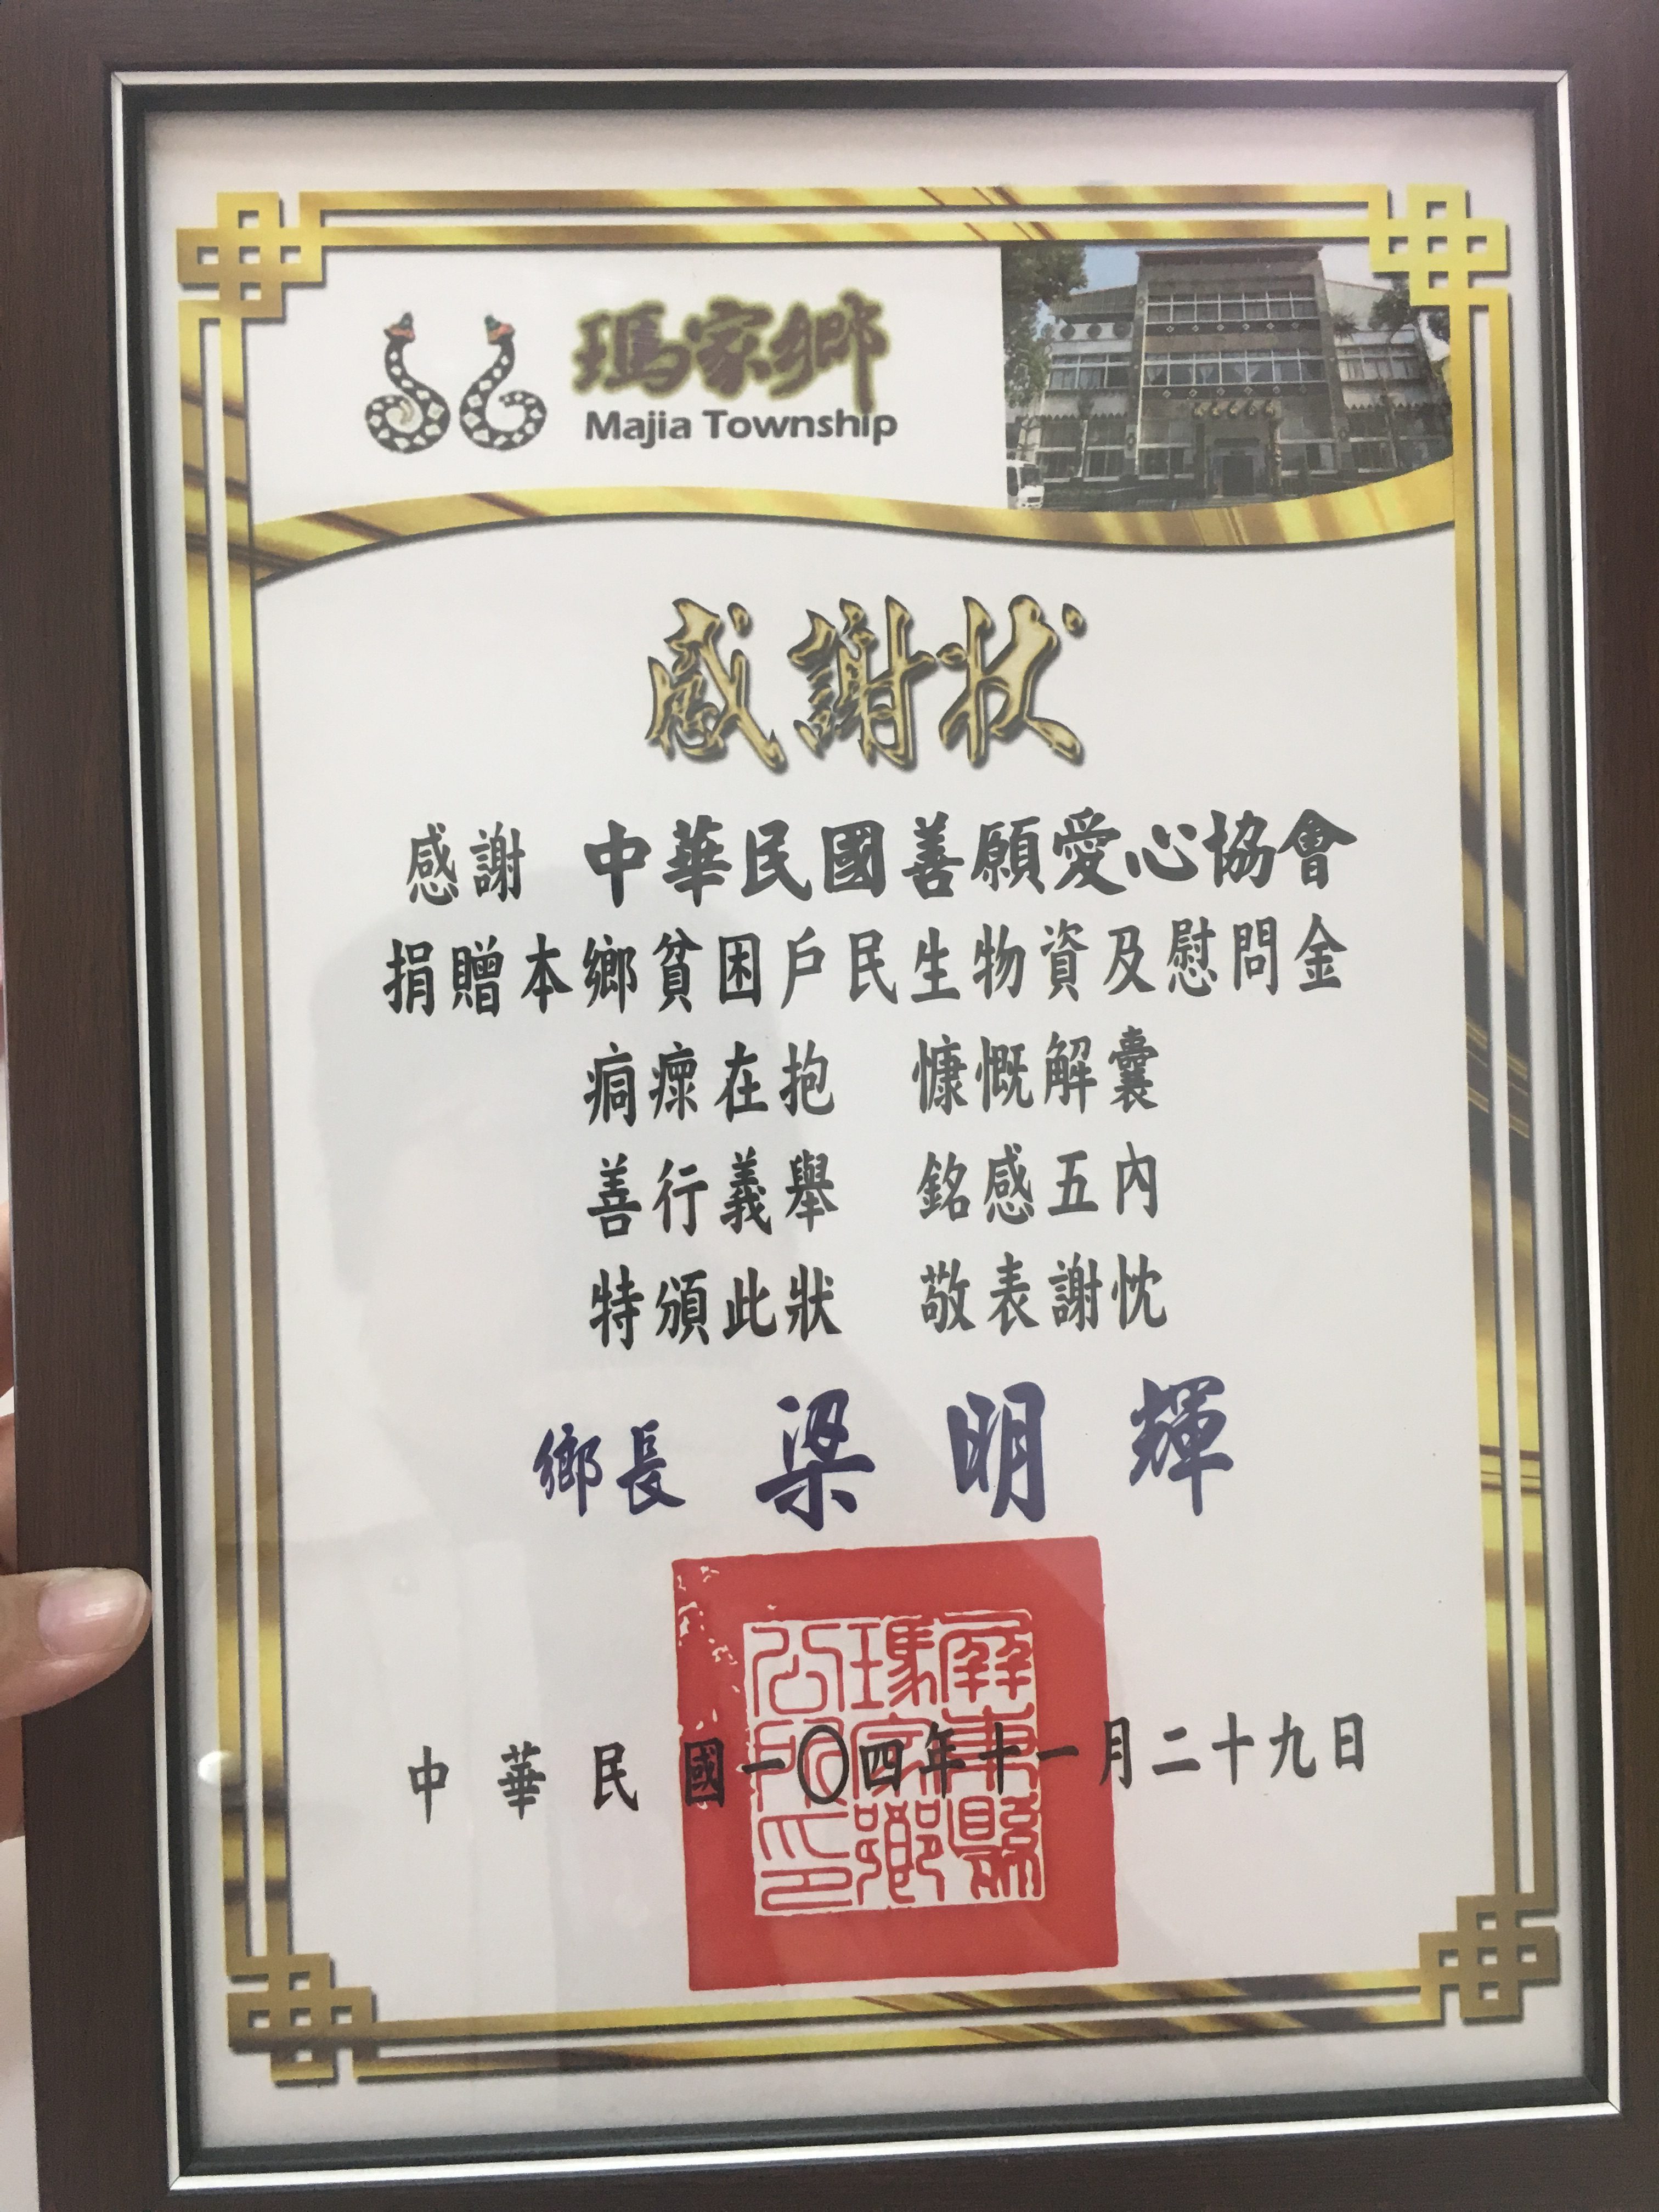 瑪家鄉
Majia Township
感謝狀
感謝 中華民國善願愛心協會
捐贈本鄉貧困戶民生物資及慰問金
痌瘝在抱 慷慨解囊
善行義舉 銘感五內
特頒此狀 敬表謝忱
鄉長 梁明輝
屏東縣
瑪家鄉
公所印
中華民國一〇四年十一月二十九日